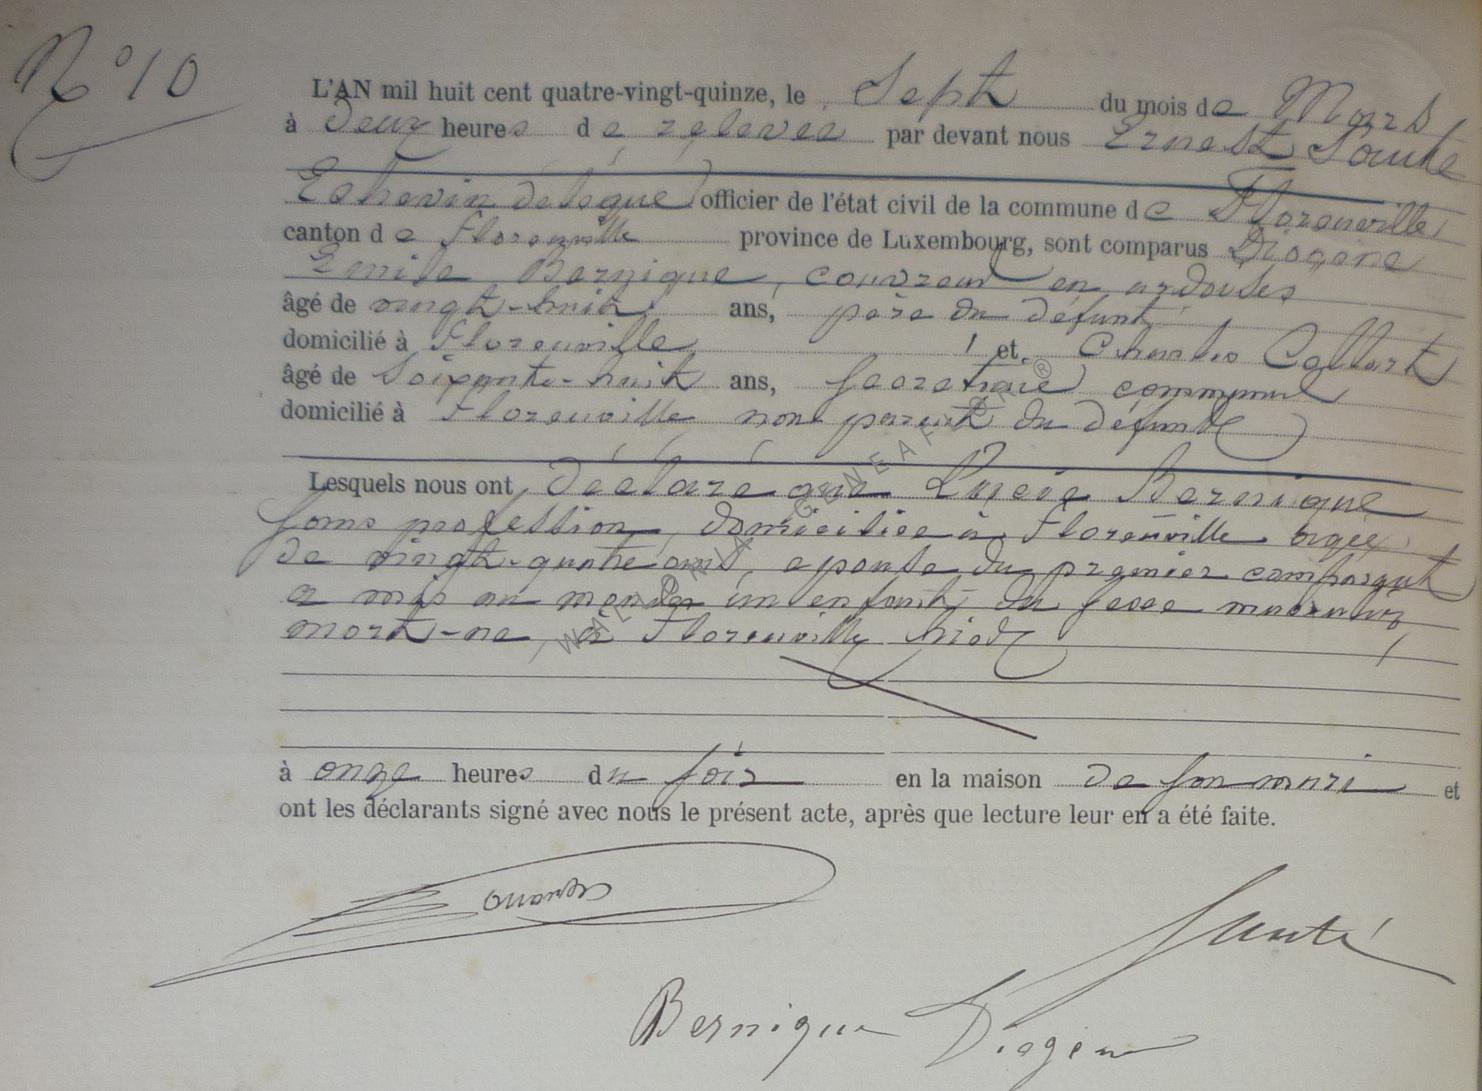 N° 10
L'AN mil huit cent quatre-vingt-quinze, le Sept du mois de Mars,
à deux heures de relevée par devant nous Ernest Santé
Echevin délégué officier de l'état civil de la commune de Florenville,
canton de Florenville province de Luxembourg, sont comparus Diogène
Emile Bernique, couvreur en ardoises
âgé de vingt-huit ans, père du défunt
domicilié à Florenville, et Charles Collart
âgé de soixante-huit ans, secrétaire communal
domicilié à Florenville non parent du défunt
Lesquels nous ont déclaré que Bernique
sans profession, domiciliée à Florenville âgée
de vingt-quatre ans, épouse du premier comparant
a mis au monde un enfant du sexe masculin,
mort-né, à Florenville hier
à onze heures du soir en la maison de son mari et
ont les déclarants signé avec nous le présent acte, après que lecture leur en a été faite.
Santé
Bernique Diogène
WALLONIA GENEAFRON ®